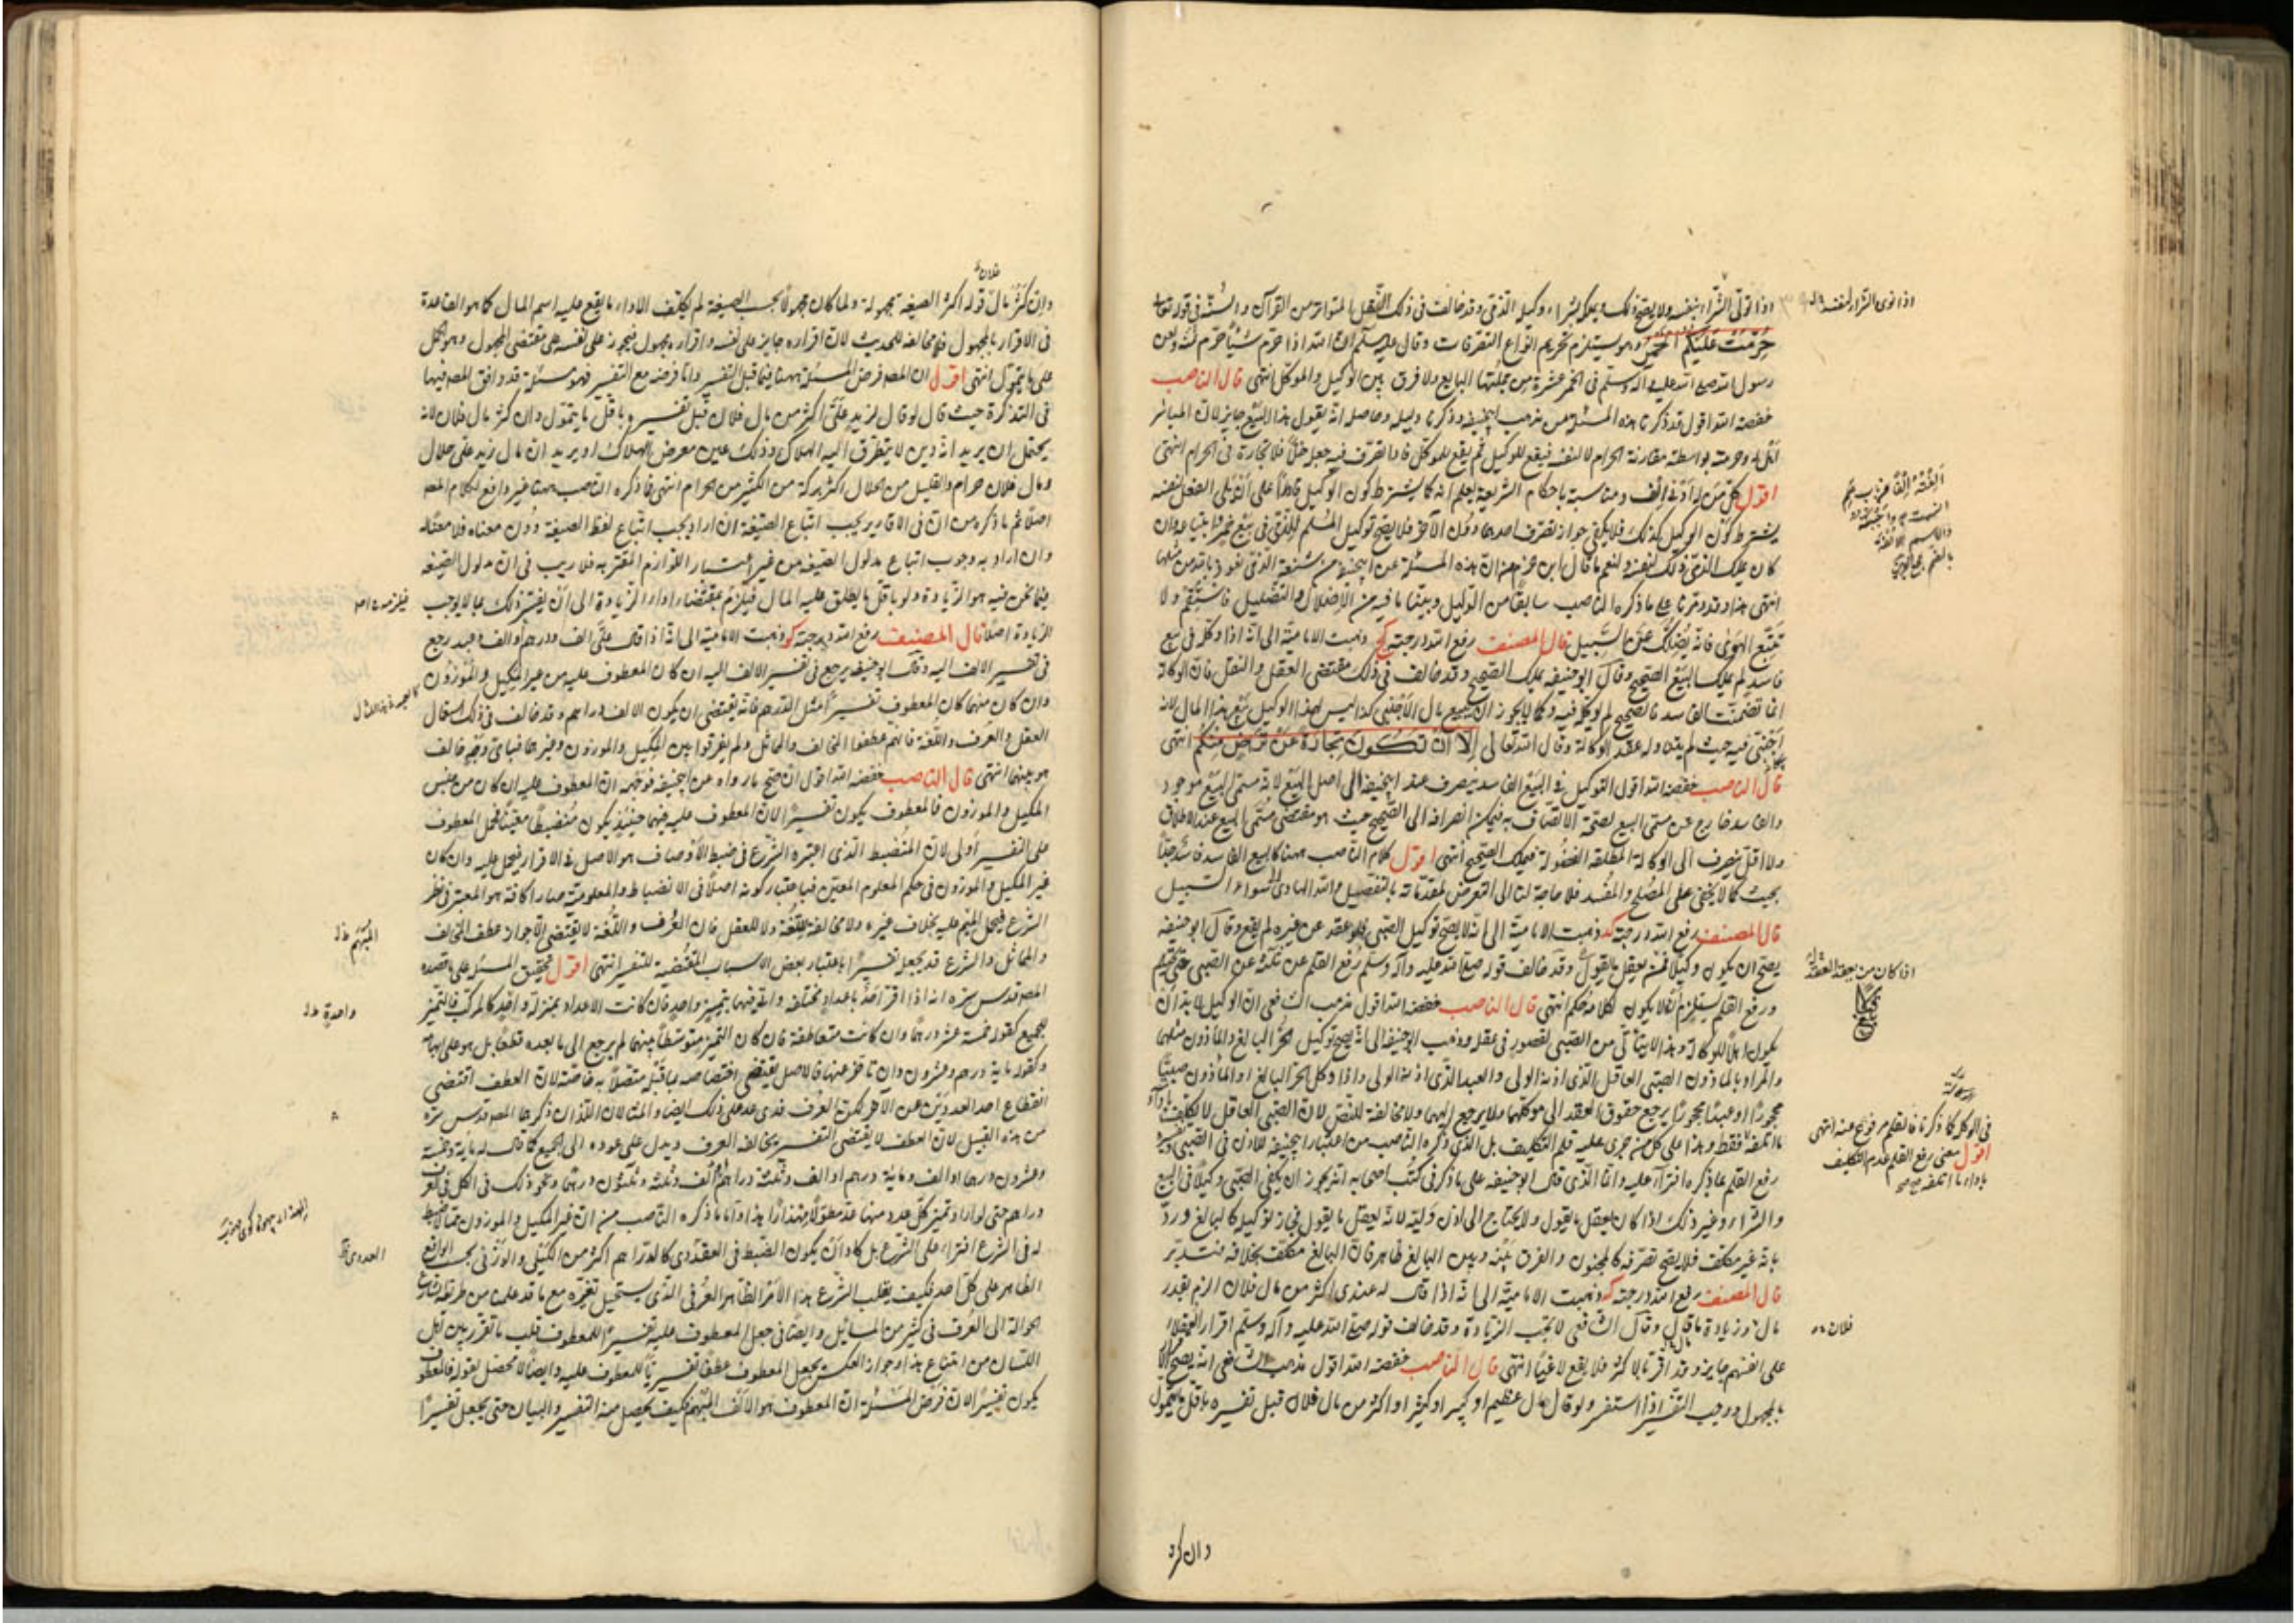 اذا تولى الشراء بنفسه ولا يصح ذلك وكيل الذمي وقد خالف في ذلك النقل المتواتر من القرآن والسنة في قوله تعالى
حرمت عليكم الخمر وهو يستلزم تحريم انواع التصرفات وقال عليه السلم ان الله اذا حرم شيئا حرم ثمنه ولعن
رسول الله صلى الله عليه وآله وسلم في الخمر عشرة من جملتها البايع ولا فرق بين الوكيل والموكل انتهى قال الناصب
خفضه الله اقول قد ذكرنا هذه المسئلة من مذهب ابي حنيفة وذكرنا دليله وحاصله انه يقول هذا البيع جايز لان المباشر
بواسطة مقارنة الحرام لا لنفسه فيقع للوكيل ثم يقع للموكل فلا تجارة في الحرام انتهى
اقول كل من له ادنى الف ومناسبة باحكام الشريعة يعلم انه كما يشترط كون الوكيل قادرا على الفعل لنفسه
يشترط كون الموكل كذلك فلا يكفي جواز تصرف احدهما دون الآخر فلا يصح توكيل المسلم للذمي في بيع خمر
كان يملك الذمي ذلك لنفسه ولنعم ما قال ابن حزم ان هذه المسئلة من ابي حنيفة من شنعه التي نعوذ بالله من مثلها
انتهى هذا وقد مر ما على ما ذكره الناصب سابقا من الوكيل وبينا ما فيه من الاضلال والتضليل فاستقم ولا
تتبع الهوى فانه يضلك عن السبيل قال المصنف رفع الله درجته كج ذهبت الامامية الى انه اذا وكله في بيع
فاسد لم يملك البيع الصحيح وقال ابو حنيفة يملك الصحيح وقد خالف في ذلك مقتضى العقل والنقل فان الوكالة
انما تضمنت الفاسد فالصحيح لم يوكله فيه وكما لا يجوز ان يبيع مال الاجنبي كذا ليس لهذا الوكيل بيع هذا المال لانه
اجنبي فيه حيث لم يتناوله عقد الوكالة وقال الله تعالى الا ان تكون تجارة عن تراض منكم انتهى
قال الناصب خفضه الله اقول التوكيل في البيع الفاسد ينصرف عند ابي حنيفة الى اصل البيع لانه مسمى البيع موجود
والفاسد خارج عن مسمى البيع لصحة الاتصاف به فيمكن انصرافه الى الصحيح حيث هو مقتضى مسمى البيع عند الاطلاق
ولا اقل ينصرف الى الوكالة المطلقة الفضولة فيملك الصحيح انتهى اقول كلام الناصب ههنا كالبيع الفاسد فاسد جدا
بحيث كما لا يخفى على المصلح والمفسد فلا حاجة لنا الى التعرض لمقدماته بالتفصيل والله الهادي الى سواء السبيل
قال المصنف رفع الله درجته كد ذهبت الامامية الى انه لا يصح توكيل الصبي فلو عقد عن غيره لم يقع وقال ابو حنيفة
يصح ان يكون وكيلا فمتى يعقل ما يقول وقد خالف قوله صلى الله عليه وآله وسلم رفع القلم عن ثلثة عن الصبي حتى يحتلم
ورفع القلم يستلزم ان لا يكون لكلامه حكم انتهى قال الناصب خفضه الله اقول مذهب الشافعي ان الوكيل لا بد ان
يكون اهلا للوكالة وهذا لا يتأتى من الصبي لقصور في عقله ومذهب ابو حنيفة الى انه يصح توكيل الحر البالغ والمأذون مثلهما
والمراد بالمأذون الصبي العاقل الذي اذنه الولي والعبد الذي اذنه المولى واذا وكل الحر البالغ او المأذون صبيا
محجورا او عبدا محجورا يرجع حقوق العقد الى موكلهما ولا يرجع اليهما ولا مخالفة للنص لان الصبي العاقل لا تكليف
ما اتلفه فقط وهذا على كل من جرى عليه قلم التكليف بل الذي ذكره الناصب من اعتبار ابي حنيفة للاذن في الصبي
رفع القلم عما ذكره افتراء عليه وانما الذي قاله ابو حنيفة على ما ذكر في كتب اصحابه انه يجوز ان يكون الصبي وكيلا في البيع
والشراء وغير ذلك اذا كان يعقل ما يقول ولا يحتاج الى اذن وليه لانه يعقل ما يقول فجاز توكيله كالبالغ ورد
بانه غير مكلف فلا يصح تصرفه كالمجنون والفرق بينه وبين البالغ ظاهر فان البالغ مكلف بخلافه فتدبر
قال المصنف رفع الله درجته كه ذهبت الامامية الى انه اذا قال له عندي اكثر من مال فلان الزم بقدر
مال وزيادة ما قال وقال الشافعي لا تجب الزيادة وقد خالف قوله صلى الله عليه وآله وسلم اقرار العقلاء
على انفسهم جايز وقد اقر بالاكثر فلا يقع لاغيا انتهى قال الناصب خفضه الله اقول مذهب الشافعي انه يصح الاقرار
بالمجهول ووجب التفسير اذا استفسر ولو قال مال عظيم او كبير او كثير او اكثر من مال فلان قبل تفسيره باقل ما يتمول
وان كثر
اقول معنى رفع القلم عدم التكليف
فلان
وان كثر مال قوله اكثر الصيغة مجهولة ولما كان مجهولا بحسب الصيغة لم يكلف الا اداء ما يقع عليه اسم المال كما هو القاعدة
في الاقرار بالمجهول فلا مخالفة للحديث لان اقراره جايز على نفسه واقراره مجهول فيجوز على نفسه على مقتضى المجهول وهو الحمل
على ما يتمول انتهى اقول ان المصنف فرض المسئلة ههنا فيما قبل التفسير واما فرضه مع التفسير فهو مسئلة قد وافق المصنف فيها
في التذكرة حيث قال لو قال لزيد علي اكثر من مال فلان قبل تفسيره باقل ما يتمول وان كثر مال فلان لانه
يحتمل ان يريد انه دين لا يتطرق اليه الهلاك وذلك عين معرض الهلاك او يريد ان مال زيد علي حلال
ومال فلان حرام والقليل من الحلال اكثر بركة من الكثير من الحرام انتهى فما ذكره الناصب ههنا غير دافع لكلام المصنف
اصلا ثم ما ذكره من ان في الاقارير يجب اتباع الصيغة ان اراد يجب اتباع لفظ الصيغة دون معناه فلا معنى له
وان اراد به وجوب اتباع مدلول الصيغة من غير اعتبار اللوازم المقترنة به فلا ريب في ان مدلول الصيغة
فيما نحن فيه هو الزيادة ولو باقل ما يطلق عليه المال فيلزم بمقتضاه اداء الزيادة الى ان يفسر ذلك بما لا يوجب
الزيادة اصلا قال المصنف رفع الله درجته كو ذهبت الامامية الى انه اذا قال علي الف ودرهم والف وعبد رجع
في تفسير الالف اليه وقال ابو حنيفة يرجع في تفسير الالف اليه ان كان المعطوف عليه من غير المكيل والموزون
وان كان منهما كان المعطوف تفسيرا مثل الف درهم فانه يقتضي ان يكون الالف دراهم وقد خالف في ذلك استعمال
العقل والعرف واللغة فانهم عطفوا المخالف والمماثل ولم يفرقوا بين المكيل والموزون وغيرهما فباي وجه خالف
هو بينهما انتهى قال الناصب خفضه الله اقول ان صح ما رواه عن ابي حنيفة فوجهه ان المعطوف عليه ان كان من جنس
المكيل والموزون فالمعطوف يكون تفسيرا لان المعطوف عليه فيهما حينئذ يكون منضبطا معينا فحمل المعطوف
على التفسير اولى لان المنضبط الذي اعتبره الشرع في ضبط الاوصاف هو الاصل في الاقرار فيحمل عليه وان كان
غير المكيل والموزون في حكم المعلوم المعين فباعتبار كونه اصلا في الانضباط والمعلومية صار كانه هو المعتبر في نظر
الشرع فيحمل المبهم عليه بخلاف غيره ولا مخالفة للغة ولا للعقل فان العرف واللغة لا يقتضي الا جواز عطف المخالف
والمماثل والشرع قد يجعل تفسيرا باعتبار بعض الاسباب المقتضية للتفسير انتهى اقول تحقيق المسئلة على ما قصده
المصنف قدس سره انه اذا اقر احد باعداد مختلفة واتى فيها بتمييز واحد فان كانت الاعداد بمنزلة واحدة كالمركب فالتمييز
للجميع كقوله خمسة عشر درهما وان كانت متعاطفة فان كان التمييز متوسطا بينهما لم يرجع الى ما بعده قطعا بل هو على ابهامه
وكقوله مائة درهم وعشرون وان تأخر عنها فالاصل يقتضي اختصاصه بما قبله متصلا به خاصة لان العطف اقتضى
انقطاع احد العددين عن الآخر لكن العرف قد يدل على ذلك ايضا والمثالان اللذان ذكرهما المصنف قدس سره
من هذه القبيل لان العطف لا يقتضي التفسير بمخالفة العرف ويدل على عوده الى الجميع كما قال له مائة وخمسة
وعشرون درهما او الف ومائة درهم او الف وثلثة دراهم او الف وثلثة وثلثون درهما ونحو ذلك في الكل في العرف
دراهم حتى لو اراد تمييز كل عدد منها عد مطولا مهذارا هذا واما ما ذكره الناصب من ان غير المكيل والموزون مما لا ضبط
له في الشرع افتراء على الشرع بل كاد ان يكون الضبط في العددي كالدراهم اكثر من الكيلي والوزني بحسب الواقع
الظاهر على كل احد فكيف يقلب الشرع هذا الامر الظاهر العرفي الذي يستحيل تغيره مع ما قد علمت من طريقة الشارع
الحوالة الى العرف في كثير من المسائل وايضا في جعل المعطوف عليه تفسيرا للمعطوف قلب ما تقرر بين اهل
اللسان من امتناع هذا وجواز العكس بجعل المعطوف عطفا تفسيريا للمعطوف عليه وايضا لا محصل لقوله فالمعطوف
يكون تفسيرا لان فرض المسئلة ان المعطوف هو الالف المبهم فكيف يحصل منه التفسير والبيان حتى يجعل تفسيرا
المبهم
واحدة
العددي